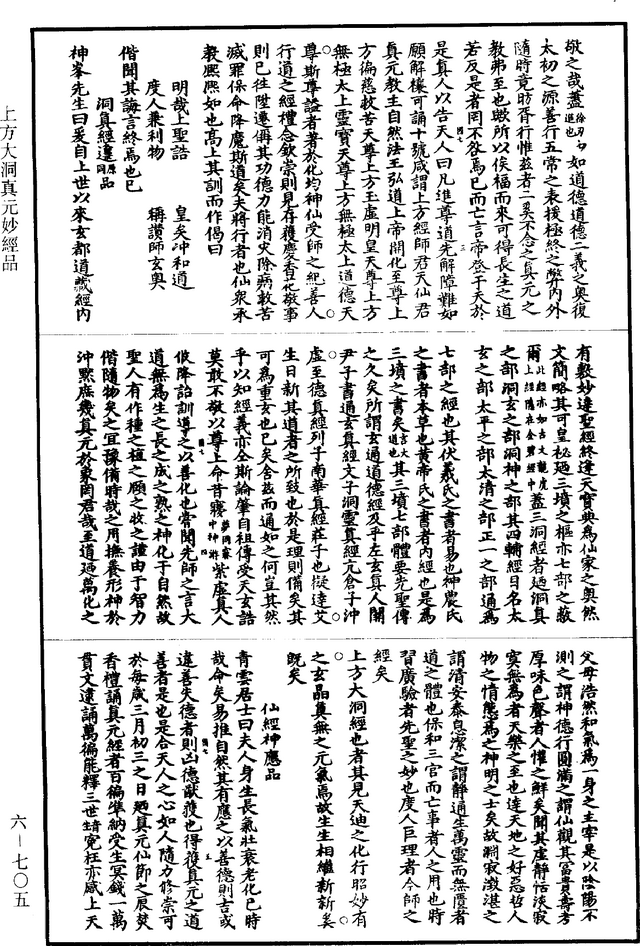 上方大洞真元妙經品
六—七〇五
敬之哉蓋徐刃切進也如道德道德二義之奧復
太初之源善行五常之表援極終之弊內外
隨時竟昉胥行惟茲者一奚不念之真元之
教弗至也歟所以俟福而來可得長生之道
若反是者罔不欲焉已而亡言帝登于天於
是真人以告天人曰凡進尊道先解障難如
願解穰可誦十號咸謂上方經師君天仙君
真元教主自然法王弘道上帝開化至尊上
方徧慈救苦天尊上方玉虛明皇天尊上方
無極太上靈寶天尊上方無極太上道德天
尊斯尊諡者著於化均神仙受師之紀善人
行道之經禮念欽崇則見存獲慶香花敬事
則已往陞遷僻其功德力能消灾除病救苦
滅罪保命降魔斯道矣夫將行者也仙衆承
教熈熈如也高上其訓而作偈曰
明哉上聖誥　皇矣冲和道
度人兼利物　稱讚師玄奧
偕聞其誨言終焉也已
洞真經邊原品同
神峯先生曰爰自上世以來玄都道藏經內
有數妙違聖經終逢天寶典爲仙家之奥然
文簡略其可皇祕廼三墳之樞亦七部之蔽
爾此經亦如古文龍虎上經隱在金碧經中蓋三洞經者廼洞真
之部洞玄之部洞神之部其四輔經目名太
玄之部太平之部太清之部正一之部通爲
七部之經也其伏羲氏之書者易也神農氏
之書者本草也黃帝氏之書者內經也是爲
三墳之書矣言大道也其三墳七部體要先聖傳
之久矣所謂玄通道德經及乎左玄真人關
尹子書通玄真經文子洞靈真經亢倉子沖
虛至德真經列子南華真經莊子也擬達艾
生日新其道者之所致也於是理則備矣其
可爲重玄也已矣舍茲而適如之何豈其然
乎以知經義亦仝斯論肇自祖傳受天玄誥
莫敢不敬以尊上命昔寢夢同寐中神游紫虛真人
伋降詒訓導之以善化也嘗聞先師之言大
道無爲生之長之成之熟之神化干自然故
聖人有作種之植之願之牧之謹由于智力
偕隨物矣之宜豫備時哉之用撫養形神於
沖默庶幾真元於象罔君哉至道廼萬化之
父母浩然和氣爲一身之主宰是以陰陽不
測之謂神德行圓滿之謂仙觀其富貴壽考
厚味色聲者人懽之鮮矣聞其虛靜恬淡寂
寞無爲者天樂之至也達天地之好惡哲人
物之情態爲之神明之士矣故淵寂澂湛之
謂清安泰息潔之謂靜通生萬靈而無匱者
道之體也保和三官而亡事者人之用也時
習廣驗者先聖之妙也度人巨理者今師之
經矣
上方大洞經也者其見天迪之化行昭妙有
之玄晶奠無之元氣焉故生生相繼新新奚
既矣
仙經神應品
青雲居士曰夫人身生長氣壯衰老化已時
哉命矣易推自然其有應之以善德則吉或
違善失德者則凶德猷獲也得獲真元之道
善者是也是合天人之心如人隨力修崇可
於每歲三月初三之日廼真元仙節之辰焚
香禮誦真元經者百徧準納受生冥錢一萬
貫文逮誦萬徧能釋三世𡨚枉亦感上天